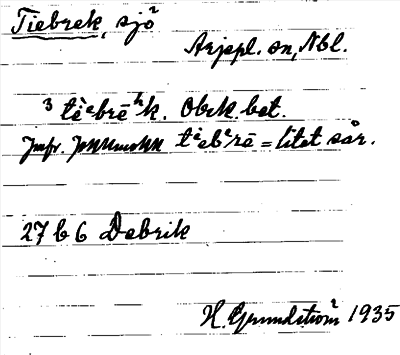 Tiebrek, sjö
Arjepl. sn, Nbl.
3 tìebrēʰk. Obek. bet.
Jmfr. tìebʳrē = litet sår.
27 b 6 Dabrik
H. Grundström 1935